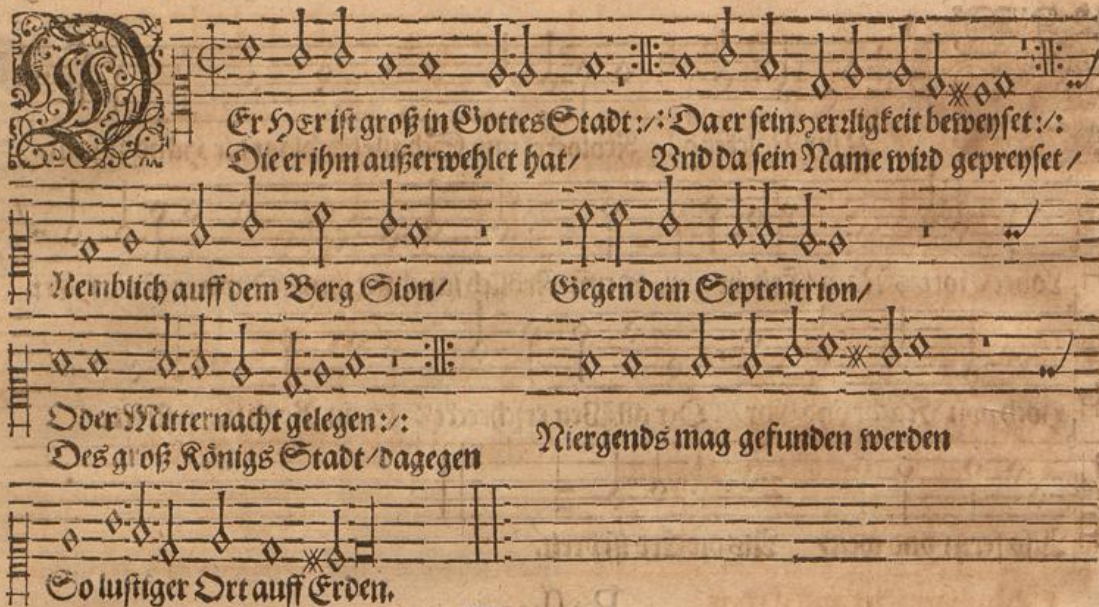 DEr HErr ist groß in Gottes Stadt :/: Da er sein herrligkeit beweyset :/:
Die er jhm außerwehlet hat / Vnd da sein Name wird gepreyset /
Nemblich auff dem Berg Sion / Gegen dem Septentrion /
Oder Mitternacht gelegen :/:
Des groß Königs Stadt / dagegen Niergends mag gefunden werden
So lustiger Ort auff Erden.